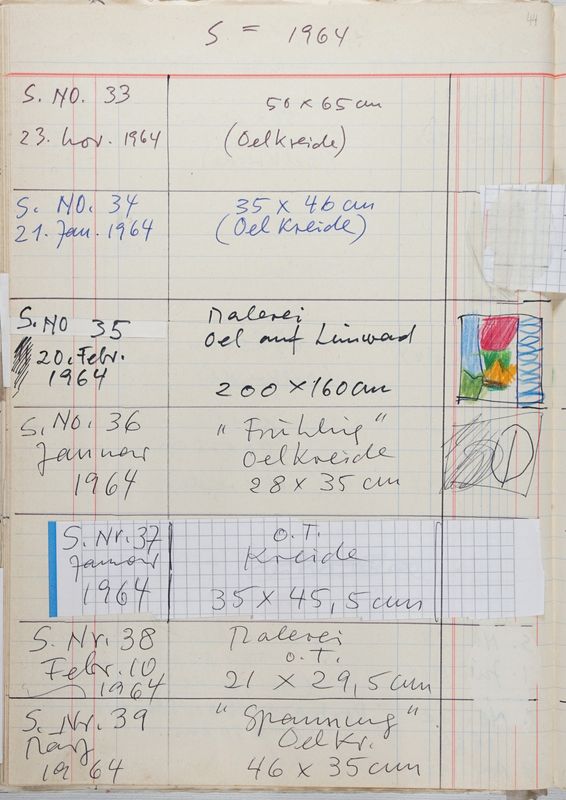 44
S = 1964
S. NO. 33
50 x 65 cm
23. Nov. 1964
(Oelkreide)
S. NO. 34
35 x 46 cm
21. Jan. 1964
(Oelkreide)
S. NO 35
Malerei
Oel auf Linwad
20. Febr.
1964
200 x 160 cm
S. No. 36
"Frühling"
Januar
Oelkreide
1964
28 x 35 cm
S. Nr. 37
O.T.
Januar
Kreide
1964
35 x 45,5 cm
S. Nr. 38
Malerei
Febr. 10
O.T.
1964
21 x 29,5 cm
S. Nr. 39
"Spannung"
März
Oelkr.
1964
46 x 35 cm